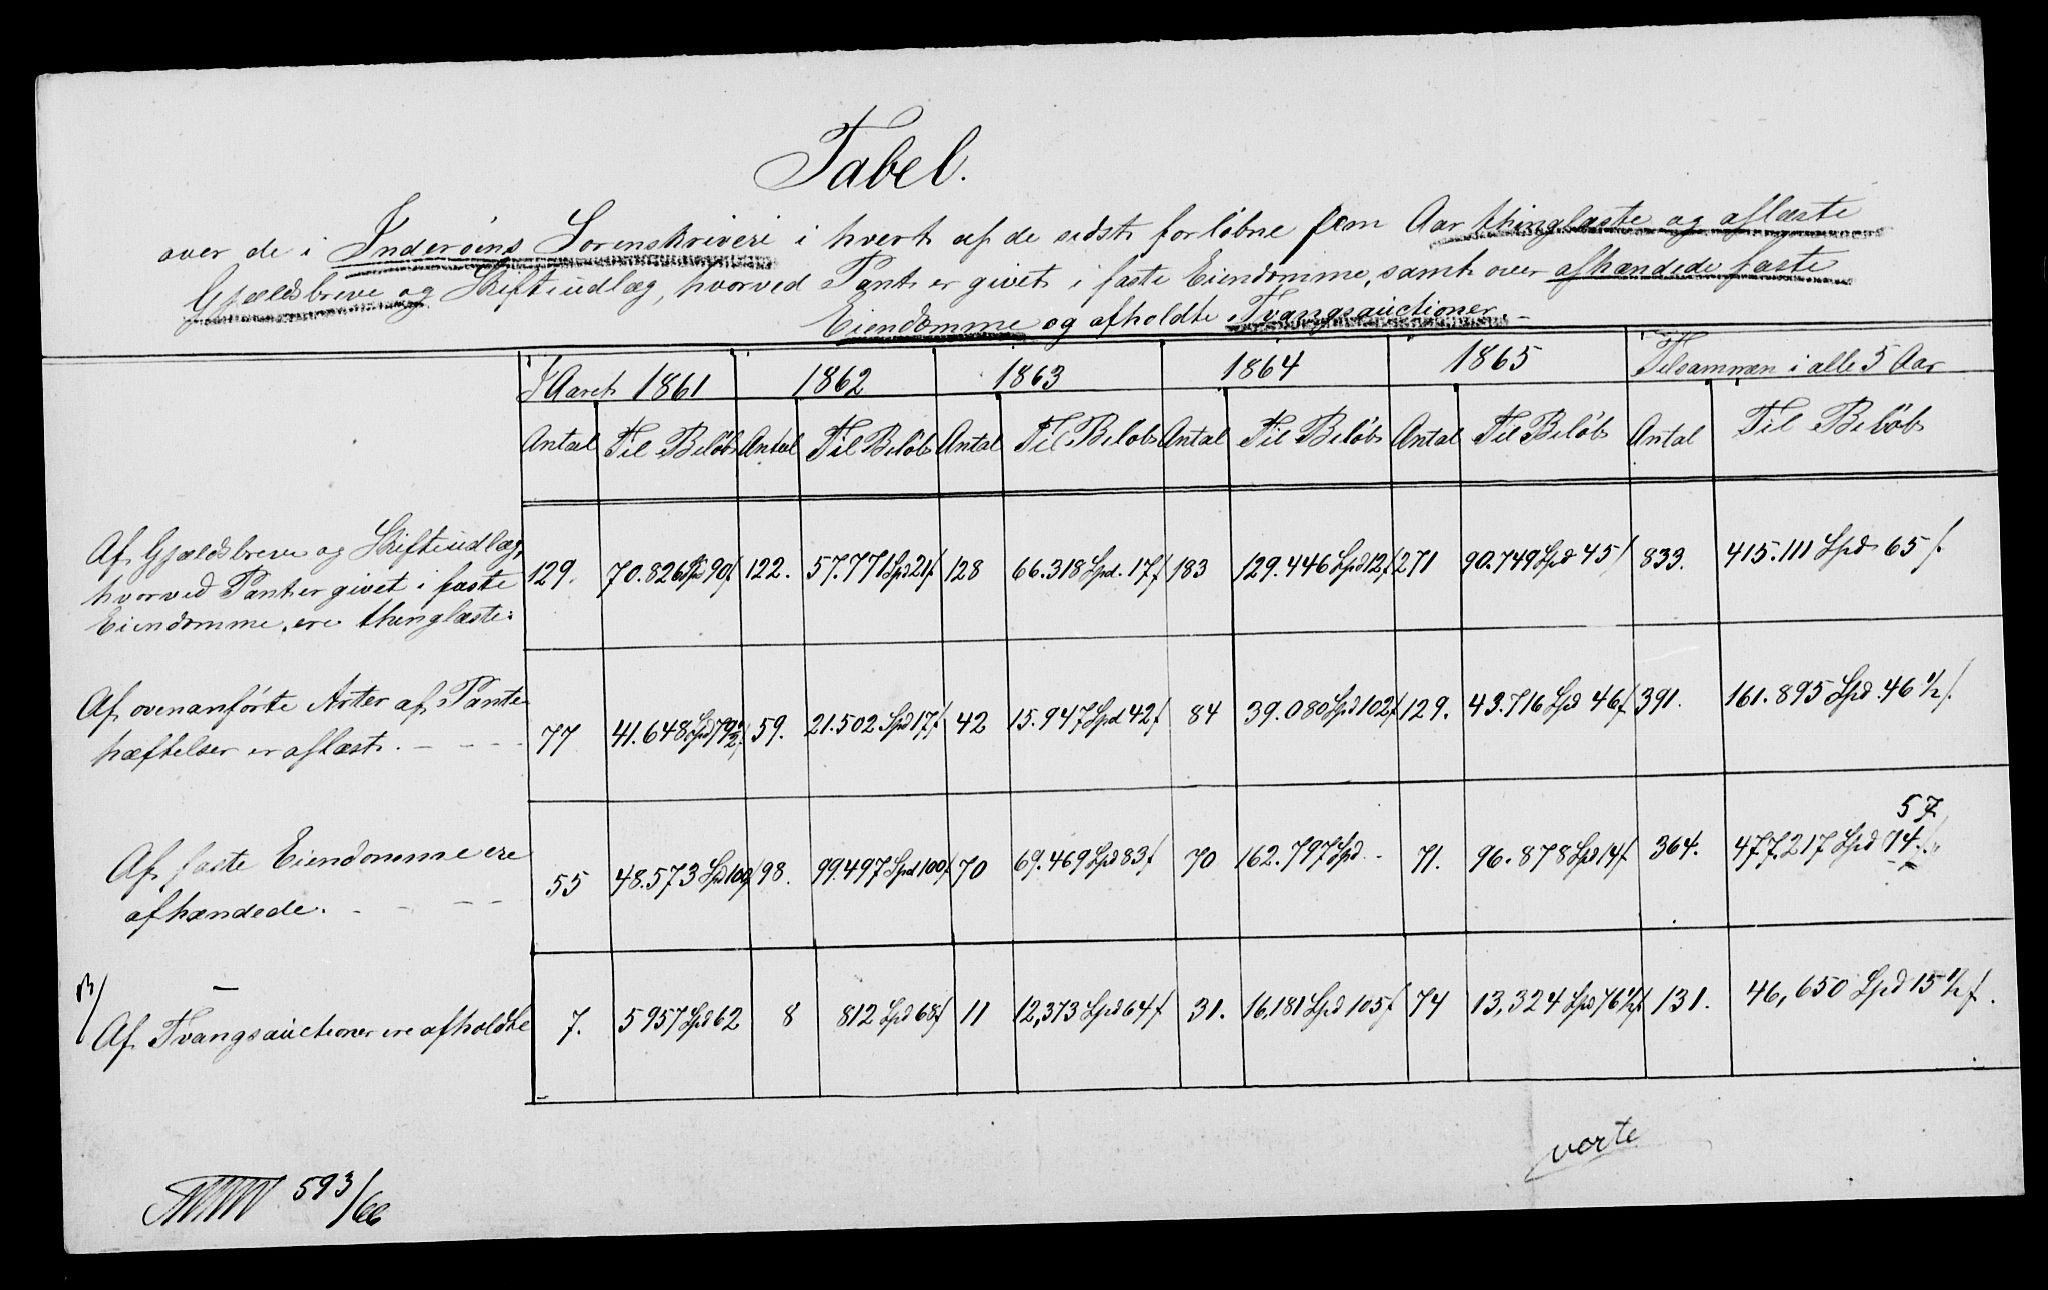 Tabel.
over de i Inderøens Sorenskriveri i hvert af de sidst forløbne fem Aar thinglæste og aflæste
Gjældsbreve og Skifteudlæg, hvorved Pant er givet i faste Eiendomme, samt over afhændede faste
Eiendomme og afholdte Tvangsauctioner.
I Aaret 1861 1862 1863 1864 1865 Tilsammen i alle 5 Aar
Antal Til Beløb Antal Til Beløb Antal Til Beløb Antal Til Beløb Antal Til Beløb Antal Til Beløb
Af Gjældsbreve og Skifteudlæg,
hvorved Pant er givet i faste
Eiendomme, ere thinglæste:
129. 70.826 Spd 90 f 122. 57.771 Spd 21 f 128 66.318 Spd. 17 f 183 129.446 Spd 12 f 271 90.749 Spd 45 f 833. 415.111 Spd 65 f.
Af ovenanførte Arter af Pante
hæftelser er aflæst. - - - -
77 41.648 Spd 79 1/2 f 59. 21.502 Spd 17 f 42 15.947 Spd 42 f 84 39.080 Spd 102 f 129. 43.716 Spd 46 f 391. 161.895 Spd. 46 1/2 f.
Af faste Eiendomme ere
afhændede. - - - -
57
55 48.573 Spd 100 f 98. 99.497 Spd 100 f 70 69.469 Spd 83 f 70 162.797 Spd - 71. 96.878 Spd 14 f 364. 477.217 Spd 14 f.
Af Tvangsauctioner ere afholdte
7. 5957 Spd 62 8 812 Spd 68 f 11 12,373 Spd 64 f 31. 16,181 Spd 105 f 74 13,324 Spd 76 1/2 f 131. 46,650 Spd 15 1/2 f.
verte
593/66